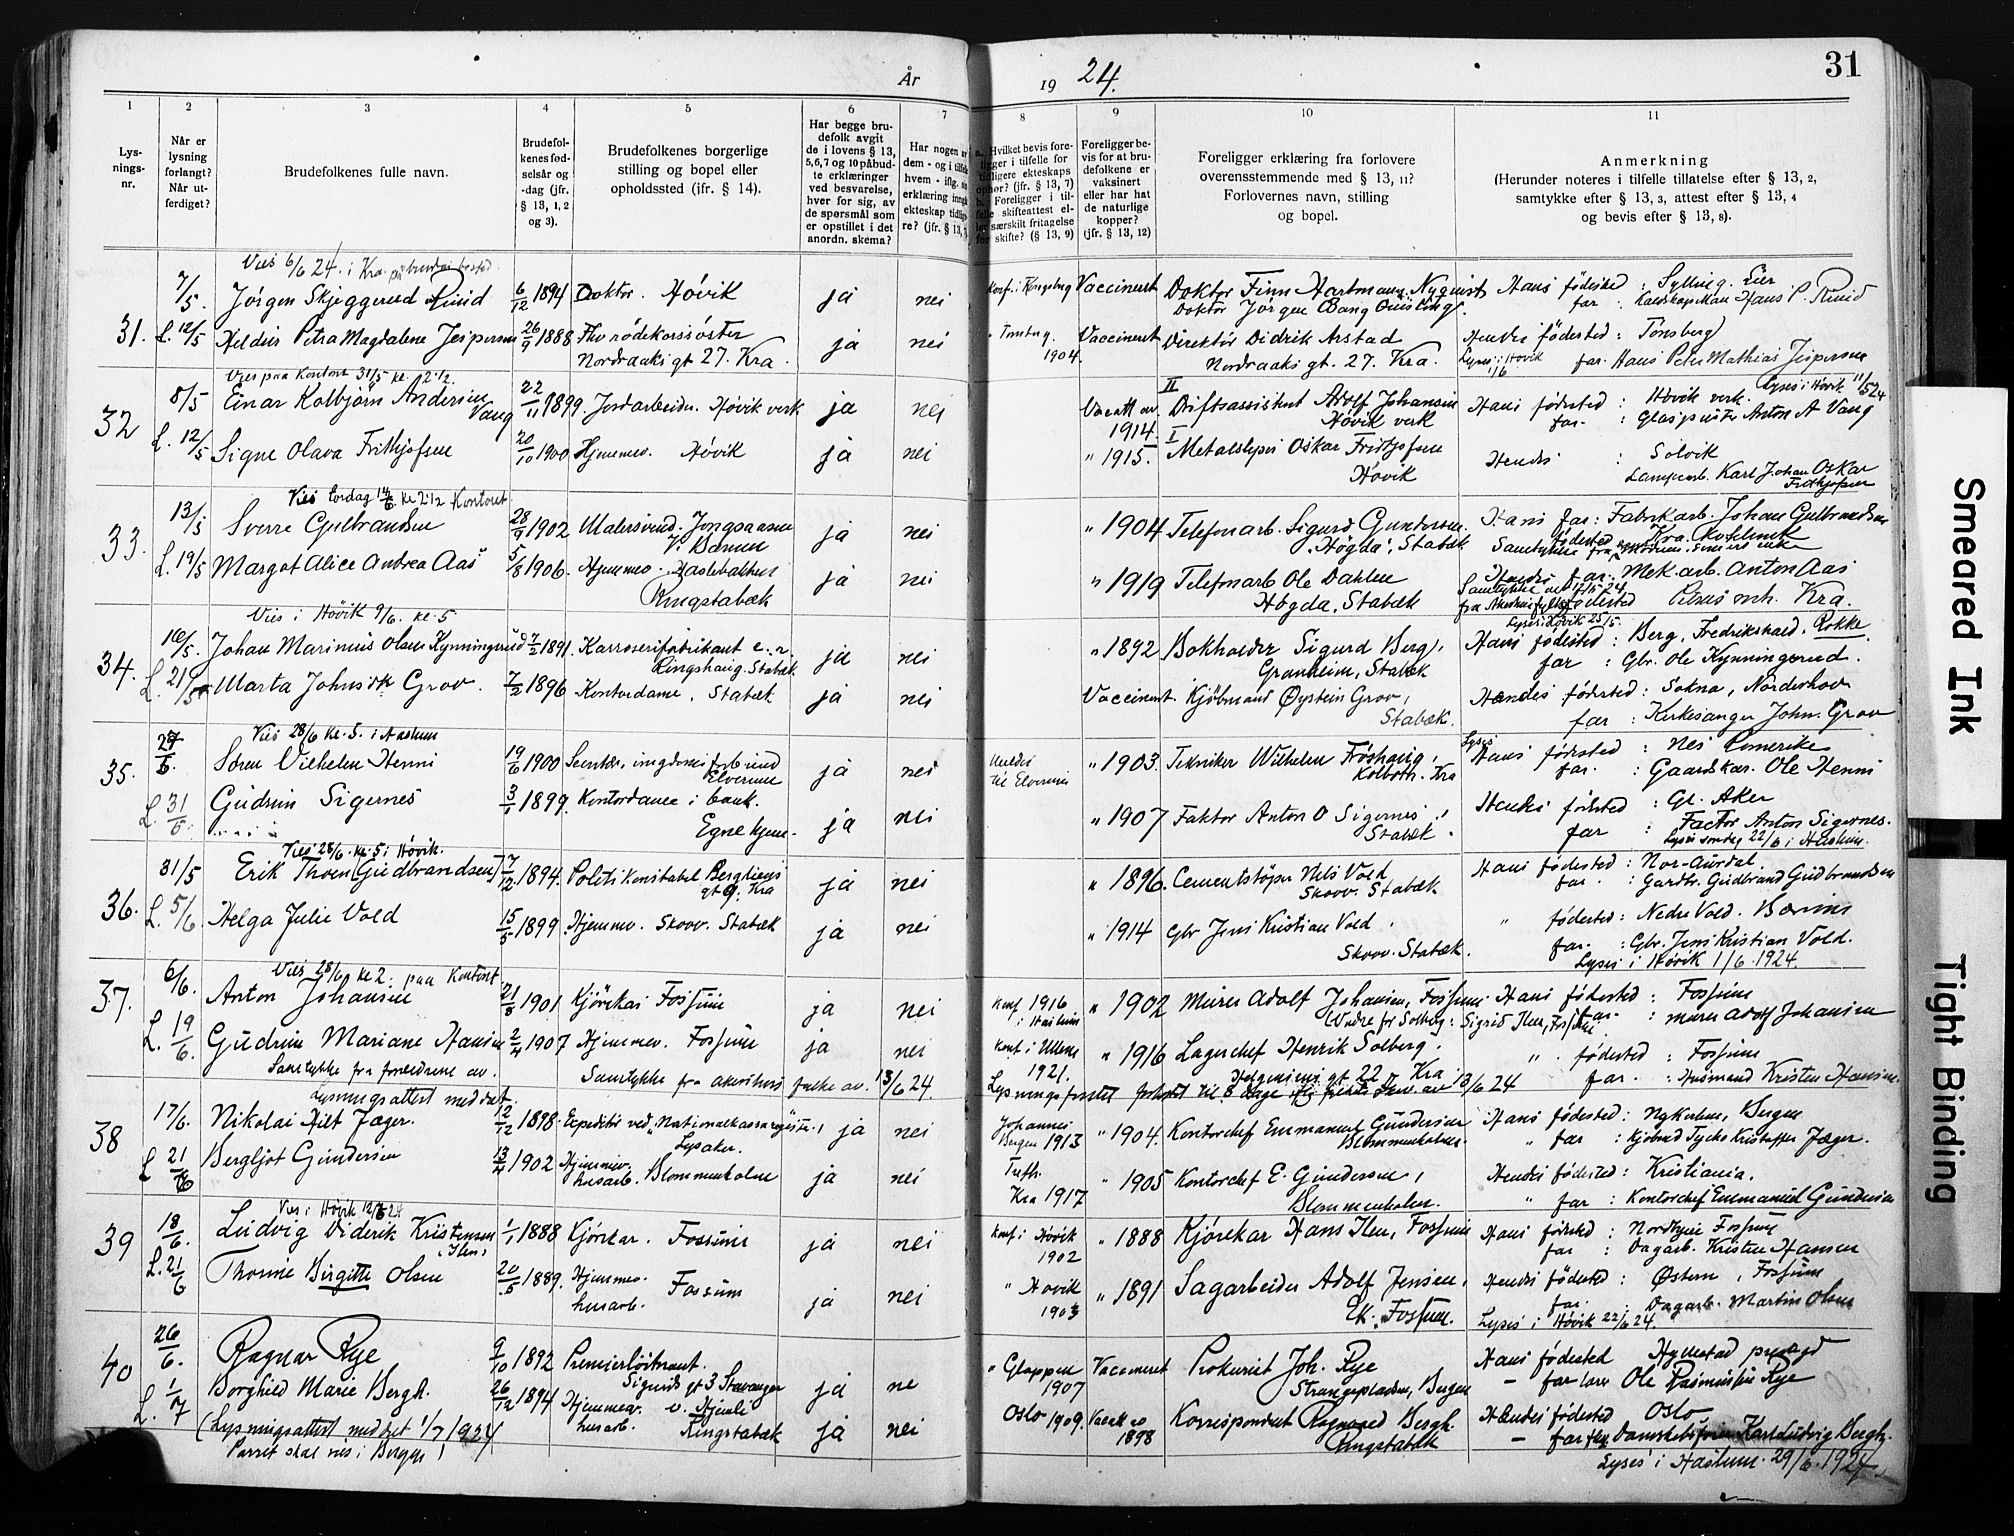 År 1924.
31
1 2 3 4 5 6 7 8 9 10 11
Lys-
nings-
nr.
Når er
lysning
forlangt?
Når ut-
ferdiget?
Brudefolkenes fulle navn.
Brudefol-
kenes fød-
selsår og
-dag (jfr.
§ 13, 1, 2
og 3).
Brudefolkenes borgerlige
stilling og bopel eller
opholdssted (jfr. § 14).
Har begge bru-
defolk avgit
de i lovens § 13,
5, 6, 7 og 10 påbud-
te erklæringer
ved besvarelse,
hver for sig, av
de spørsmål som
er opstillet i det
anordn. skema?
Har nogen av
dem - og i tilfelle
hvem - iflg. sin
erklæring inngåt
ekteskap tidlig-
re? (jfr. § 13, 7)
Hvilket bevis fore-
ligger i tilfelle for
tidligere ekteskaps
ophør? (jfr. § 13, 7)
Foreligger i til-
felle skifteattest el-
ler særskilt fritagelse
for skifte? (§ 13, 9)
Foreligger be-
vis for at bru-
defolkene er
vaksinert
eller har hat
de naturlige
kopper?
(jfr. § 13, 12)
Foreligger erklæring fra forlovere
overensstemmende med § 13, 11?
Forlovernes navn, stilling
og bopel.
Anmerkning
(Herunder noteres i tilfelle tillatelse efter § 13, 2,
samtykke efter § 13, 3, attest efter § 13, 4
og bevis efter § 13, 8).
Vies 6/6 24. i Kra.
31. 7/5 Jörgen Skjeggerud Ruud 6/12 1894 Doktor. Hövik ja nei Konf. i Kongsberg Vaccinert Doktor Finn Hartmann Nyquist Hans födested : Sylling, Lier
Doktor Jörgen Bang Quisling. far : Hans P. Ruud
L. 12/5 Petra Magdalene Jespersen 26/9 1888 Nordraaks gt 27. Kra. ja nei 1904. Vaccinert Direktör Didrik Arstad Hendes födested : Tönsberg
Nordraaks gt. 27. Kra. far. Hans Peter Mathias Jespersen
Vies paa Kontoret 31/5 kl. 2 1/2.
32 8/5 Einar Kolbjörn Andersen Vang 22/11 1899. Jordarbeider. Hövik verk ja nei 1914. II Driftsassistent Adolf Johansen Hövik verk Hans födested : Hövik verk. Lyses i Hövik 11/5 24
far. : Glaspuster Anton A Vang
L. 12/5 Signe Olava Frithjofsen 20/10 1900 Hjemmev. Hövik ja nei " 1915. I Metalsliper Oskar Frithjofsen Hövik Hendes : Solvik
Karl Johan Oskar Frithjofsen
Vies Lördag 14/6 kl 2 1/2 Kontoret
33. 13/5 Sverre Gulbrandsen 28/9 1902 Malersvend. Jongsaasen V. Bærum ja nei " 1904 Telefonarb. Sigurd Gundersen. "Högda", Stabæk Hans far: Fabrikarb. Johan Gulbrandsen
födested Kra.
L. 19/5 Margot Alice Andrea Aas 5/8 1906. Hjemmev. Ringstabæk ja nei " 1919 Telefonarb Ole Dahlen Högda, Stabæk Hendes far: Mek. arb. Anton Aas
födested Kra.
Lyses i Hövik 25/5.
Vies i Hövik 9/6. kl. 5
34. 16/5. Johan Marinius Olsen Kynningsrud 7/2 1891. Karosserifabrikant Ringshaug. Stabæk. ja nei " 1892 Bokholder Sigurd Berg, Granheim, Stabæk Hans födested : Berg, Fredrikshald. Rokke
far : Gbr. Ole Kynningsrud.
L. 21/5 Marta Johnsdt. Grov. 7/2 1896 Kontordame, Stabæk ja nei Vaccinert. Kjöbmand Øystein Grov, Stabæk. Hendes födested : Sokna, Norderhov
far : Kirkesanger John. Grov
Vies 28/6 kl. 5. i Haslum
35. Sören Vilhelm Henni 19/6 1900 Elverum ja nei Meddelt til Elverum " 1903. Tekniker Wilhelm Fröshaug, Kolbotn. Kra Hans födested : Nes Romerike
far. : Gaardskar. Ole Henni
L. 31/5. Gudrun Sigernes 3/1 1899. Kontordame i bank. Egne hjem. ja nei " 1907 Faktor Anton O Sigernes, Stabæk. Hendes födested : Gl. Aker
far : Factor Anton Sigernes.
Lyses söndag 22/6 i Haslum.
Vies 28/6. kl. 5 i Hövik.
36. 31/5 Erik Thoen (Gudbrandsen) 7/12 1894. Politikonstabel Bergliens gt 9. Kra ja nei " 1896. Cementstöper Nils Vold Skov. Stabæk Hans födested : Nor-Aurdal.
far. : Gardbr. Gudbrand Gudbrandsen
L. 5/6. Helga Julie Vold 15/5 1899. Hjemmev. Skov. Stabæk ja nei " 1914 Gbr Jens Kristian Vold. Skov. Stabæk. " födested : Nedre Vold. Bærum
far. : Gbr. Jens Kristian Vold.
Lyses i Hövik 1/6. 1924.
Vies 28/6 kl 2. paa Kontoret
37. 6/6. Anton Johansen 21/8 1901 Kjörekar Fossum ja nei Konf 1916 i Haslum " 1902 Murer Adolf Johansen, Fossum Hans födested : Fossum
Sigrid Ilen, Fossum far. : murer Adolf Johansen
L. 19/6. Gudrun Mariane Hansen 2/4 1907 Hjemmev. Fossum ja nei Konf. i Ullern 1921. " 1916 Lagerchef Henrik Solberg. Helgesens gt 22, Kra " födested : Fossum
far. : Husmand Kristen Hansen.
Samtykke fra foreldrene av. Samtykke fra Akershus fylke av. 13/6 24.
Lysningsfristet forkortet til 8 dage 13/6 24
Lysningsattest meddelt.
38 17/6. Nikolai Hilt Jæger. 12/12 1898. Expeditör ved "Nationalkassaregister", Lysaker. ja nei Johannes Bergen 1913 " 1904. Kontorchef Emmanuel Gundersen Blommenholm. Hans födested : Nykirken, Bergen
" far : Kjöbmd Tycho Kristoffer Jæger.
L. 21/6 Bergljot Gundersen 13/4 1902 Hjemmev. husarb. Blommenholm ja nei Trefh. Kra 1917 " 1905 Kontorchef E. Gundersen, Blommenholm. Hendes födested : Kristiania.
" far : Kontorchef Emmanuel Gundersen
Vies i Hövik 12/7 24
39 18/6. Ludvig Diderik Kristensen (Ilen) 1/1 1888 Kjörekar. Fossum ja nei Konf i Hövik 1902 " 1888 Kjörekar Hans Ilen, Fossum Hans födested : Fossum
far : Dagarb. Kristen Hansen
L. 21/6 Thorine Birgitte Olsen 20/5 1889. Hjemmev. husarb. Fossum ja nei " Hövik 1903 " 1891 Sagarbeider Adolf Jensen, Ek. Fossum. Hendes födested : Østern, Fossum
far. : Dagarb. Martin Olsen
Lyses i Hövik 22/6 24.
40 26/6. Ragnar Rye 9/10 1892 Premierlöitnant. Sigurds gt 3 Stavanger ja nei " Gloppen 1907 Vaccineret Prokurist Joh. Rye Strangepladsen, Bergen Hans födested Hyllestad prestegj
" far Ole Rasmussen Rye
L. 1/7 Borghild Marie Bergh. 26/12 1894 Hjemmev. v. Hjemli husarb. Ringstabæk ja nei Oslo 1909. 1898 Korrespondent Ragnvald Bergh. Ringstabæk Hendes födested Oslo
" far Karl Ludvig Bergh.
(Lysningsattest meddelt 1/7 1924
Parret skal vies i Bergen!
Lyses i Haslum. 29/6. 1924.
Smeared Ink
Tight Binding